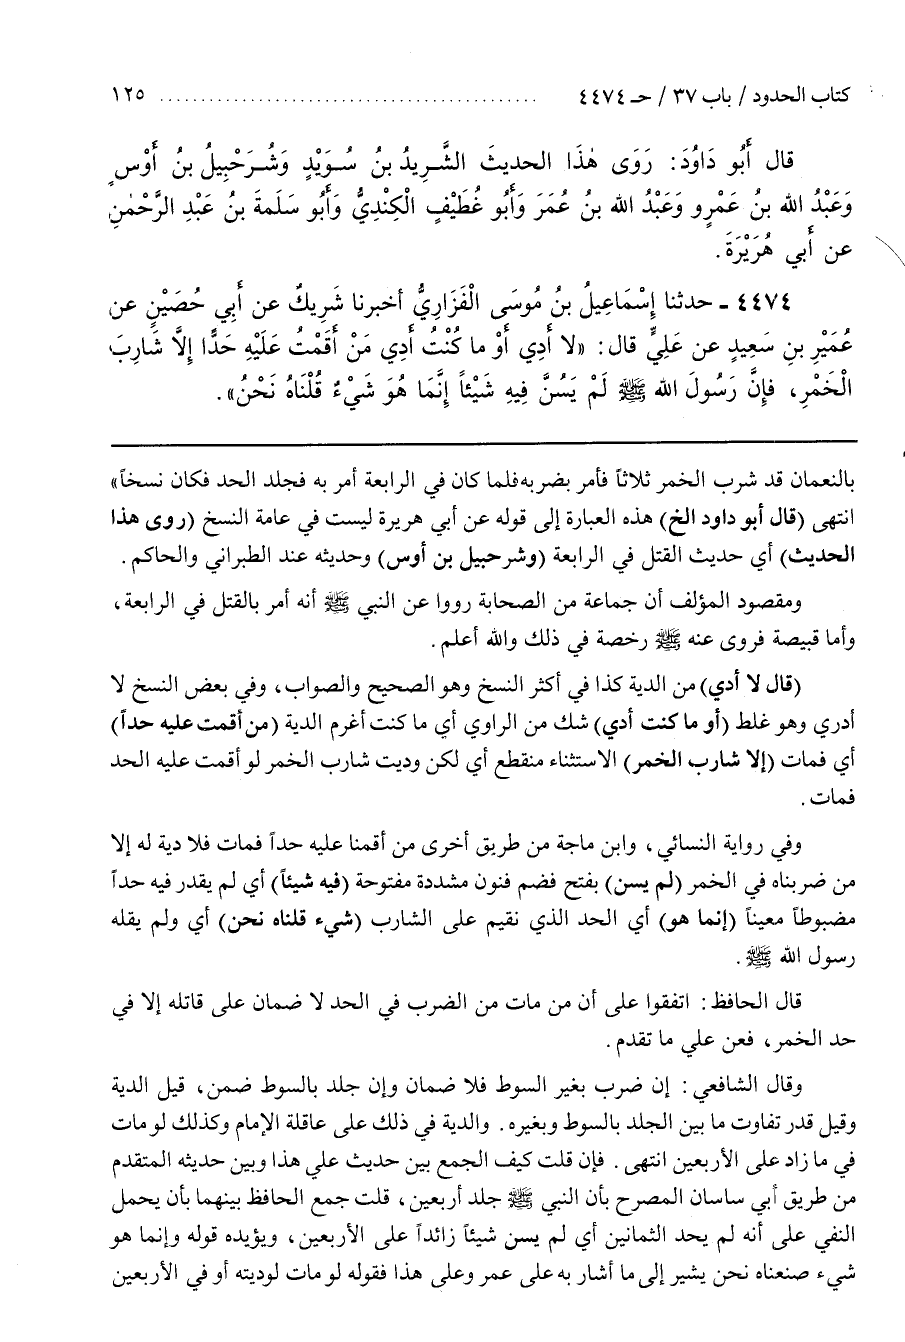 كتاب الحدود / باب ٣٧ / حـ ٤٤٧٤ ............................................ ١٢٥
قال أَبُو دَاوُدَ: رَوَى هٰذَا الحديثَ الشَّرِيدُ بنُ سُوَيْدٍ وَشُرَحْبِيلُ بنُ أَوْسٍ
وَعَبْدُ الله بنُ عَمْرٍو وَعَبْدُ الله بنُ عُمَرَ وَأَبُو غُطَيْفٍ الْكِنْدِيُّ وَأَبُو سَلَمةَ بنُ عَبْدِ الرَّحْمٰنِ
عن أَبي هُرَيْرَةَ.
٤٤٧٤ ـ حدثنا إِسْمَاعِيلُ بنُ مُوسَى الْفَزَارِيُّ أخبرنا شَرِيكٌ عن أَبِي حُصَيْنٍ عن
عُمَيْرِ بنِ سَعِيدٍ عن عَلِيٍّ قال: «لا أَدِي أَوْ ما كُنْتُ أَدِي مَنْ أَقَمْتُ عَلَيْهِ حَدًّا إلاَّ شَارِبَ
الْخَمْرِ، فإِنَّ رَسُولَ الله ﷺ لَمْ يَسُنَّ فِيهِ شَيْئاً إِنَّمَا هُوَ شَيْءٌ قُلْنَاهُ نَحْنُ».
بالنعمان قد شرب الخمر ثلاثاً فأمر بضربه فلما كان في الرابعة أمر به فجلد الحد فكان نسخاً»
انتهى (قال أبو داود الخ) هذه العبارة إلى قوله عن أبي هريرة ليست في عامة النسخ (روى هذا
الحديث) أي حديث القتل في الرابعة (وشرحبيل بن أوس) وحديثه عند الطبراني والحاكم.
ومقصود المؤلف أن جماعة من الصحابة رووا عن النبي ﷺ أنه أمر بالقتل في الرابعة،
وأما قبيصة فروى عنه ﷺ رخصة في ذلك والله أعلم.
(قال لا أدي) من الدية كذا في أكثر النسخ وهو الصحيح والصواب، وفي بعض النسخ لا
أدري وهو غلط (أو ما كنت أدي) شك من الراوي أي ما كنت أغرم الدية (من أقمت عليه حداً)
أي فمات (إلا شارب الخمر) الاستثناء منقطع أي لكن وديت شارب الخمر لو أقمت عليه الحد
فمات.
وفي رواية النسائي، وابن ماجة من طريق أخرى من أقمنا عليه حداً فمات فلا دية له إلا
من ضربناه في الخمر (لم يسن) بفتح فضم فنون مشددة مفتوحة (فيه شيئاً) أي لم يقدر فيه حداً
مضبوطاً معيناً (إنما هو) أي الحد الذي نقيم على الشارب (شيء قلناه نحن) أي ولم يقله
رسول الله ﷺ.
قال الحافظ: اتفقوا على أن من مات من الضرب في الحد لا ضمان على قاتله إلا في
حد الخمر، فعن علي ما تقدم.
وقال الشافعي: إن ضرب بغير السوط فلا ضمان وإن جلد بالسوط ضمن، قيل الدية
وقيل قدر تفاوت ما بين الجلد بالسوط وبغيره. والدية في ذلك على عاقلة الإمام وكذلك لو مات
في ما زاد على الأربعين انتهى. فإن قلت كيف الجمع بين حديث علي هذا وبين حديثه المتقدم
من طريق أبي ساسان المصرح بأن النبي ﷺ جلد أربعين، قلت جمع الحافظ بينهما بأن يحمل
النفي على أنه لم يحد الثمانين أي لم يسن شيئاً زائداً على الأربعين، ويؤيده قوله وإنما هو
شيء صنعناه نحن يشير إلى ما أشار به على عمر وعلى هذا فقوله لو مات لوديته أو في الأربعين